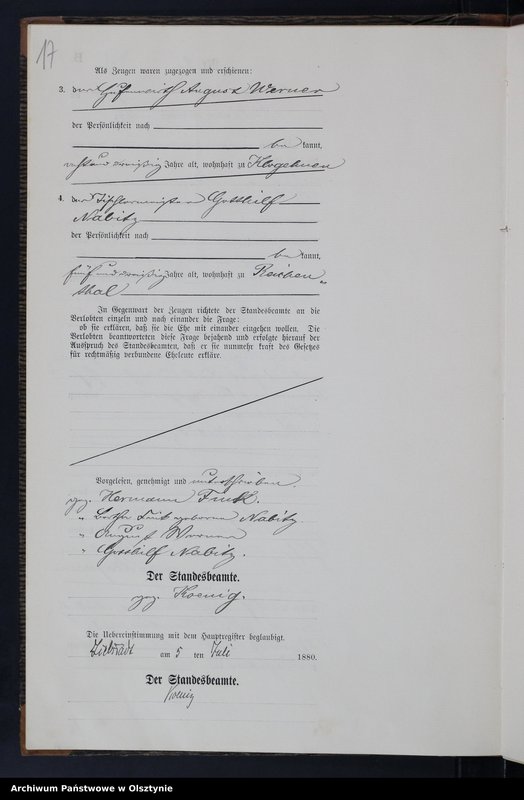 17
Als Zeugen waren zugezogen und erschienen:
3. der Hufenwirth August Werner
der Persönlichkeit nach
be kannt,
acht und dreißig Jahre alt, wohnhaft zu Klogehnen
4. der Tischlermeister Gotthilf
Nabitz
der Persönlichkeit nach
be kannt,
fünf und dreißig Jahre alt, wohnhaft zu Reichen„
thal
In Gegenwart der Zeugen richtete der Standesbeamte an die
Verlobten einzeln und nach einander die Frage:
ob sie erklären, daß sie die Ehe mit einander eingehen wollen. Die
Verlobten beantworteten diese Frage bejahend und erfolgte hierauf der
Ausspruch des Standesbeamten, daß er sie nunmehr kraft des Gesetzes
für rechtmäßig verbundene Eheleute erkläre.
Vorgelesen, genehmigt und unterschrieben.
gez. Hermann Funk.
„ Bertha Funk geborene Nabitz
„ August Werner
„ Gotthilf Nabitz.
Der Standesbeamte.
gez. Koenig.
Die Uebereinstimmung mit dem Hauptregister beglaubigt.
Liebstadt am 5 ten Juli 1880.
Der Standesbeamte.
Koenig
Archiwum Państwowe w Olsztynie